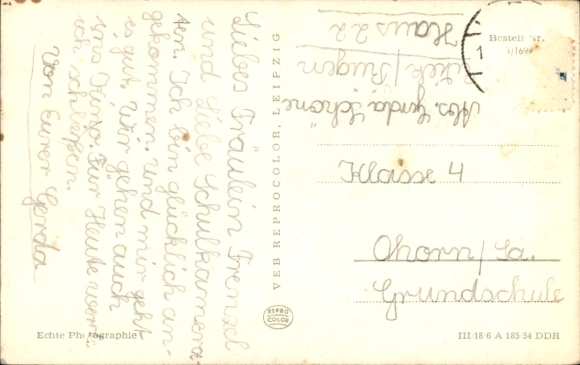 Liebes Fräulein Frenzel
und Liebe Schulkamera-
ten. Ich bin glücklich an-
gekommen. und mir geht
es gut. Wir gehen auch
ins
Für Heute werde
ich schließen.
Von Eurer Gerda
VEB REPROCOLOR, LEIPZIG
REPRO
COLOR
Echte Photographie
Bestell Nr.
Abs. Gerda Schöne
/Rügen
Haus 22
Klasse 4
Ohorn/Sa.
Grundschule
III/18/6 A 185/54 DDR